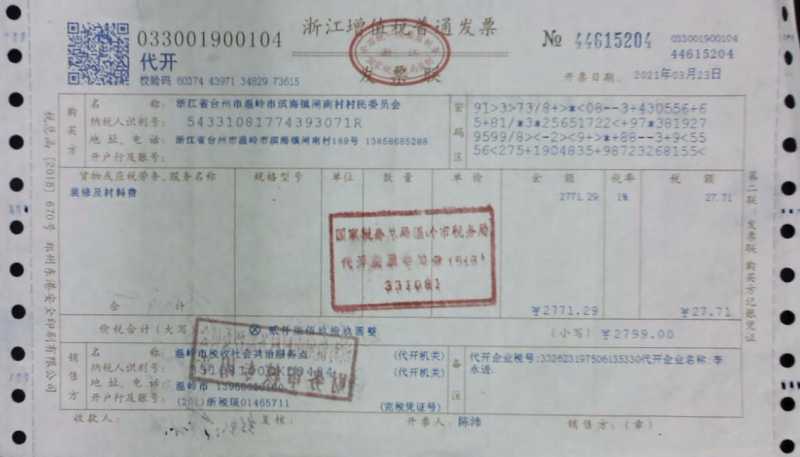 033001900104
浙江增值税普通发票
№ 44615204
033001900104
44615204
代开
发票联
校验码 60374 43971 34829 73615
开票日期: 2021年03月23日
税总函〔2018〕670号 郑州东港安全印刷有限公司
购买方
名 称: 浙江省台州市温岭市滨海镇闸南村村民委员会
纳税人识别号: 54331081774393071R
地 址、电 话: 浙江省台州市温岭市滨海镇闸南村189号 13858685288
开户行及账号:
密码区
91>3>73/8+>*<08--3+430556+6
5+81/*3*25651722<+97*381927
9599/8><-2><9+>*+88--3+9<55
56<275+1904835+98723268155<
货物或应税劳务、服务名称 规格型号 单位 数 量 单 价 金 额 税率 税 额
装修及材料费 2771.29 1% 27.71
国家税务总局温岭市税务局
331081
合 计 ¥2771.29 ¥27.71
价税合计(大写) (小写) ¥2799.00
第二联:发票联 购买方记账凭证
销售方
名 称: 温岭市税收社会共治服务点 (代开机关)
纳税人识别号: (代开机关)
地 址、电 话: 温岭市
开户行及账号: 01465711 (完税凭证号)
备注
代开企业税号:332623197506135330代开企业名称:李
永进.
收款人: 复核: 开票人: 陈沛 销售方:(章)